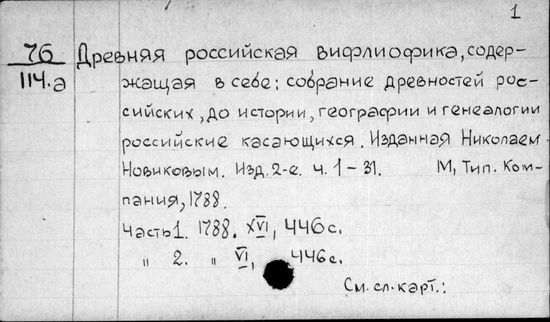 1
76 Древняя российская вифлиофика, содер-
114.а жащая в себе: собрание древностей рос-
сийских, до истории, географии и генеалогии
российские касающихся. Изданная Николаем
Новиковым. Изд. 2-е. ч. 1-31. М, Тип. Ком-
пания, 1788.
Часть 1. 1788. XVI, 446 с.
" 2. " VI, 446 с.
См. сл. карт.: